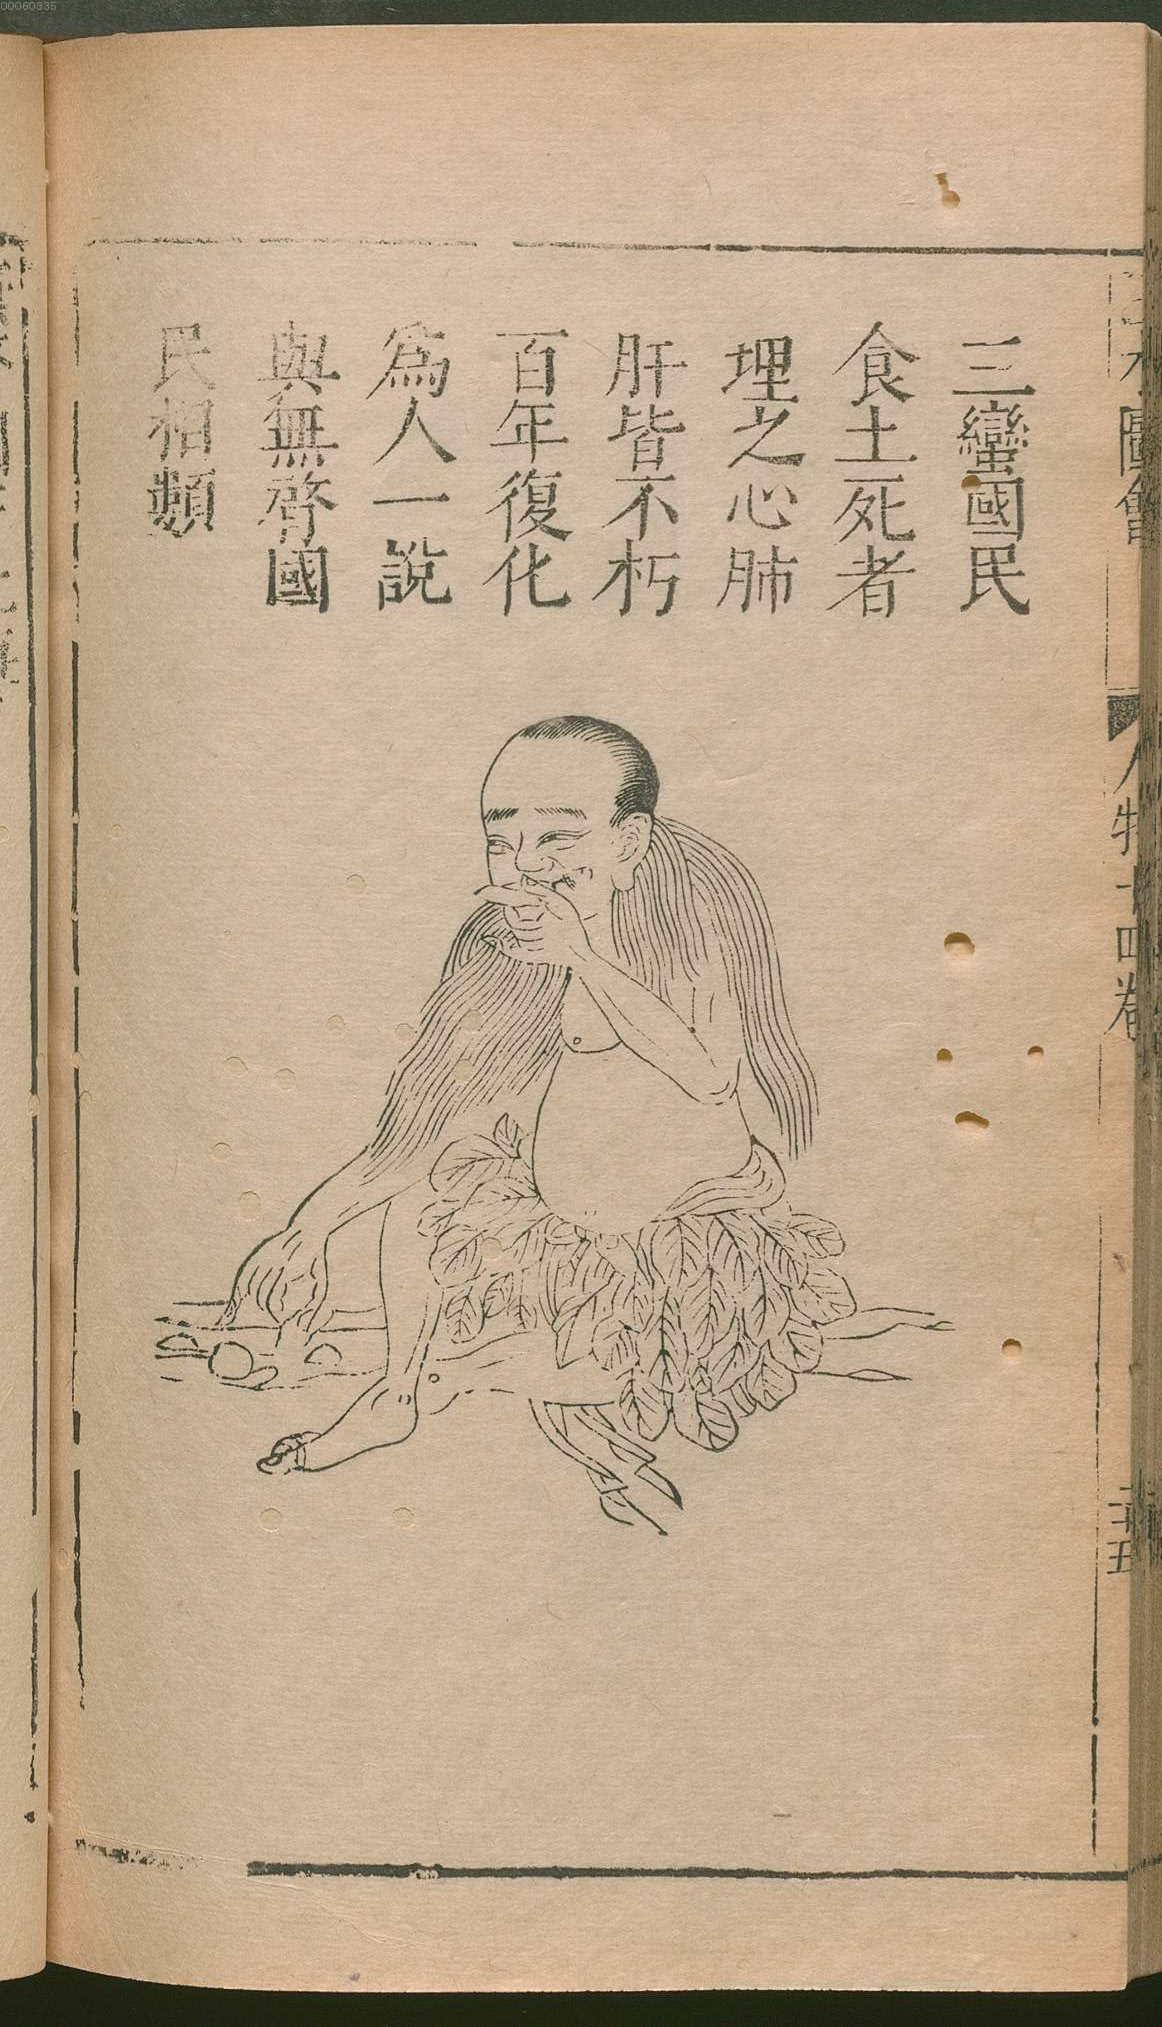 三蠻國民
食土死者
埋之心肺
肝皆不朽
百年復化
為人一說
與無䏿國
民相類
圖會
人物十四卷
二十五
00060335